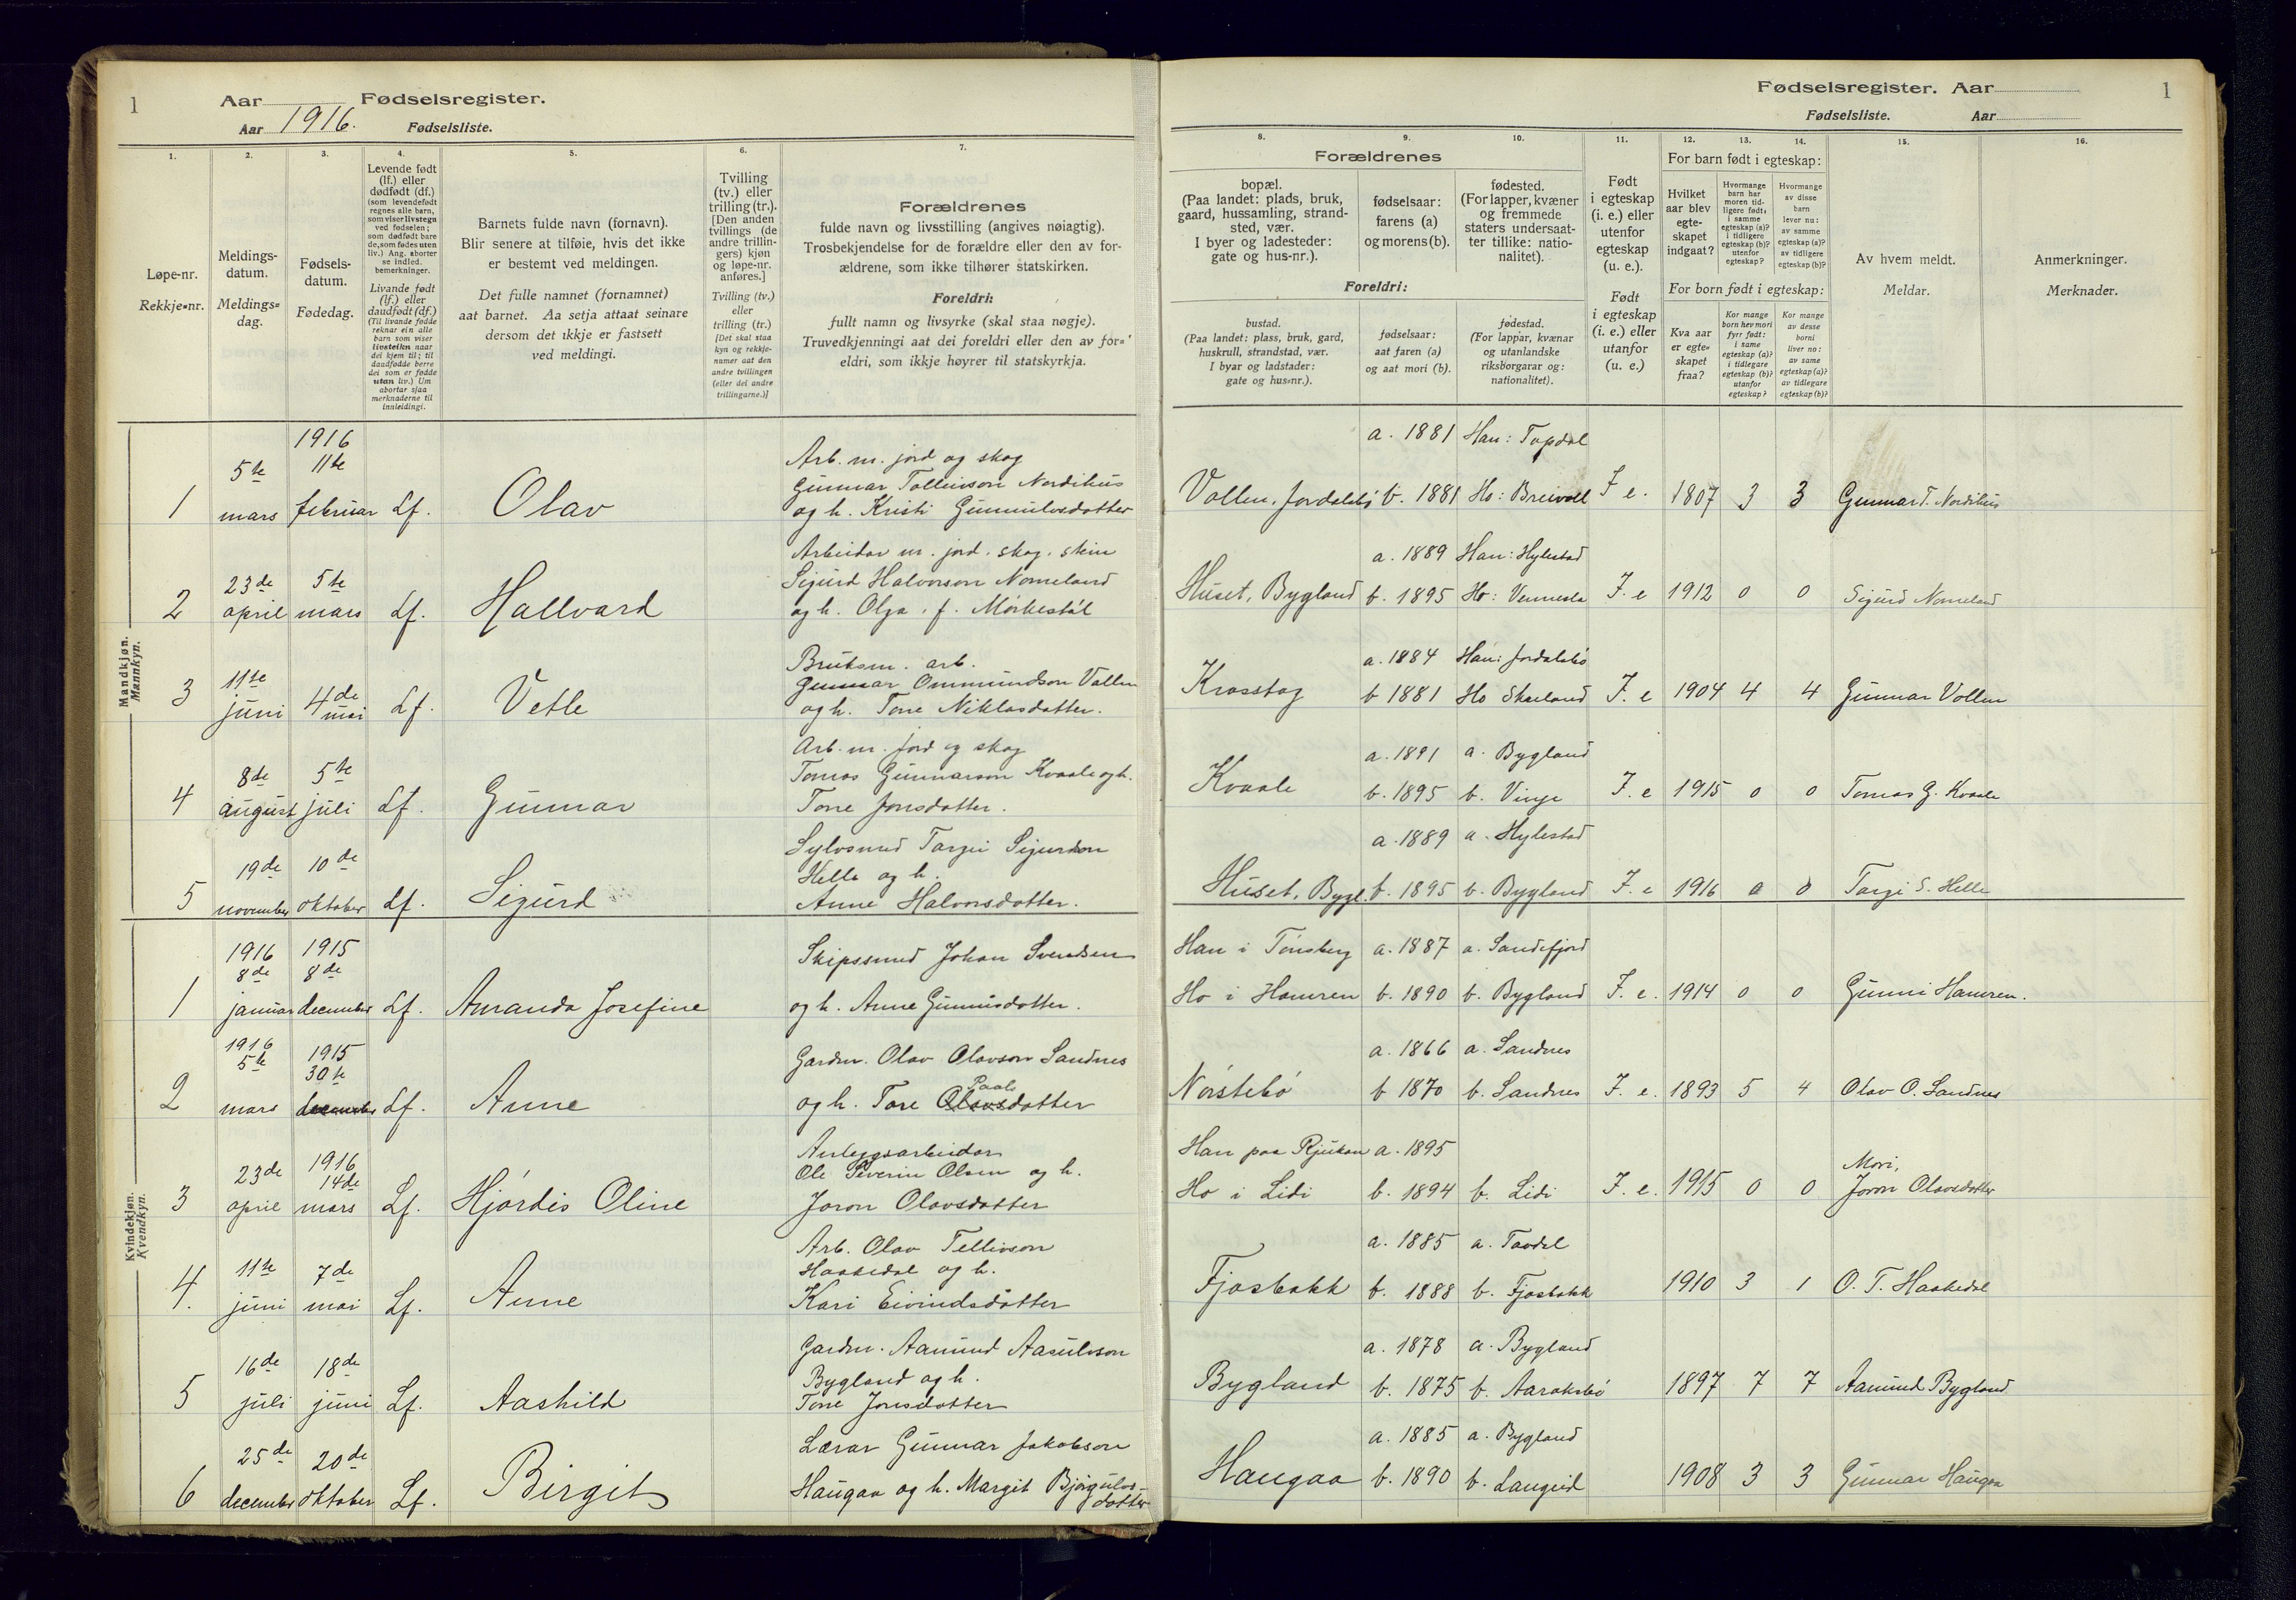 1
Aar Fødselsregister.
Aar 1916. Fødselsliste.
1. 2. 3. 4. 5. 6. 7.
Løpe-nr.
Rekkje-nr.
Meldings-
datum.
Meldings-
dag.
Fødsels-
datum.
Fødedag.
Levende født
(lf.) eller
dødfødt (df.)
(som levendefødt
regnes alle barn,
som viser livstegn
ved fødselen;
som dødfødt bare
de, som fødes uten
liv.) Ang. aborter
se indled.
bemerkninger.
Livande født
(lf.) eller
daudfødt (df.)
(Til livande fødde
reknar ein alle
barn som viser
livsteikn naar
dei kjem til; til
daudfødde berre
dei som er fødde
utan liv.) Um
abortar sjaa
merknaderne til
innleidingi.
Barnets fulde navn (fornavn).
Blir senere at tilføie, hvis det ikke
er bestemt ved meldingen.
Det fulle namnet (fornamnet)
aat barnet. Aa setja attaat seinare
dersom det ikkje er fastsett
ved meldingi.
Tvilling
(tv.) eller
trilling (tr.).
[Den anden
tvillings (de
andre trillin-
gers) kjøn
og løpe-nr.
anføres.]
Tvilling (tv.)
eller
trilling (tr.)
[Det skal staa
kyn og rekkje-
numer aat den
andre tvillingen
(eller dei andre
trillingarne.)]
Forældrenes
fulde navn og livsstilling (angives nøiagtig).
Trosbekjendelse for de forældre eller den av for-
ældrene, som ikke tilhører statskirken.
Foreldri:
fullt namn og livsyrke (skal staa nøgje).
Truvedkjenningi aat dei foreldri eller den av for-
eldri, som ikkje høyrer til statskyrkja.
Mandkjøn.
Mannkyn.
1 5te mars 1916 11te februar Lf. Olav
Arb. m. jord og skog
Gunnar Tellevson Nordihus
og h. Kristi Gunnulvsdotter
2 23de april 5te mars Lf. Hallvard
Arbeidar m. jord, skog, stein
Sigurd Halvorson Nomeland
og h. Olga, f. Mørkestøl
3 11te juni 4de mai Lf. Vetle
Bruksm. arb.
Gunnar Ommundson Vollen
og h. Tone Niklasdotter.
4 8de august 5te juli Lf. Gunnar
Arb. m. jord og skog
Tomas Gunnarson Kvaale og h.
Tone Jonsdotter.
5 19de november 10de oktober Lf. Sigurd
Sylvsmed Torgei Sigurdson
Helle og h.
Anne Halvorsdotter.
Kvindekjøn.
Kvendkyn.
1 1916 8de januar 1915 8de december Lf. Amanda Josefine
Skipssmed Johan Svendsen
og h. Anne Gunnusdotter.
2 1916 5te mars 1915 30te december Lf. Anne
Gardm. Olav Olavson Sandnes
Paals
og h. Tore Olavsdotter
3 23de april 1916 14de mars Lf. Hjørdis Oline
Anleggsarbeidar
Ole Severin Olsen og h.
Joron Olavsdotter
4. 11te juni 7de mai Lf. Anne
Arb. Olav Tellevson
Haakedal og h.
Kari Eivindsdotter
5 16de juli 18de juni Lf. Aashild
Gardm. Aamund Aasulvson
Bygland og h.
Tone Jonsdotter
6 25de december 20de oktober Lf. Birgit
Lærar Gunnar Jakobson
Haugaa og h. Margit Bjørgulvs-
dotter
Fødselsregister. Aar 1
Fødselsliste. Aar
8. 9. 10. 11. 12. 13. 14. 15. 16.
Forældrenes
bopæl.
(Paa landet: plads, bruk,
gaard, hussamling, strand-
sted, vær.
I byer og ladesteder:
gate og hus-nr.).
fødselsaar:
farens (a)
og morens (b).
fødested.
(For lapper, kvæner
og fremmede
staters undersaat-
ter tillike: natio-
nalitet).
Foreldri:
bustad.
(Paa landet: plass, bruk, gard,
huskrull, strandstad, vær.
I byar og ladstader:
gate og hus-nr.).
fødselsaar:
aat faren (a)
og aat mori (b).
fødestad.
(For lappar, kvænar
og utanlandske
riksborgarar og:
nationalitet).
Født
i egteskap
(i. e.) eller
utenfor
egteskap
(u. e.).
Født
i egteskap
(i. e.) eller
utanfor
(u. e.)
For barn født i egteskap:
Hvilket
aar blev
egte-
skapet
indgaat?
Hvormange
barn har
moren tid-
ligere født:
i samme
egteskap (a)?
i tidligere
egteskap (b)?
utenfor
egteskap?
Hvormange
av disse
barn
lever nu:
av samme
egteskap (a)?
av tidligere
egteskap (b)?
For born født i egteskap:
Kva aar
er egte-
skapet
fraa?
Kor mange
born hev mori
fyrr født:
i same
egteskap (a)?
i tidlegare
egteskap (b)?
utanfor
egteskap?
Kor mange
av desse
borni
liver no:
av same
egteskap (a)?
av tidlegare
egteskap (b)?
Av hvem meldt.
Meldar.
Anmerkninger.
Merknader.
a. 1881 Han: Topdal
Vollen, Jordalsbø b. 1881 Ho: Breivoll I. e. 1807 3 3 Gunnar T. Nordihus
a. 1889 Han: Hylestad
Huset, Bygland b. 1895 Ho: Vennesla I. e 1912 0 0 Sigurd Nomeland
a. 1884 Han: Jordalsbø
Krosstog b 1881 Ho Skeiland I. e 1904 4 4 Gunnar Vollen
a. 1891 a. Bygland
Kvaale b. 1895 b. Vinje I. e 1915 0 0 Tomas G. Kvaale
a. 1889 a. Hylestad
Huset, Bygl. b. 1895 b. Bygland I. e 1916 0 0 Torgi S. Helle
Han i Tønsberg a. 1887 a. Sandefjord
Ho i Hamren b. 1890 b. Bygland I. e. 1914 0 0 Gunni Hamren.
a. 1866 a. Sandnes
Nørstebø b 1870 b. Sandnes I. e. 1893 5 4 Olav O. Sandnes
Han paa Rjukan a. 1895
Mori,
Ho i Lidi b. 1894 b. Lidi I. e. 1915 0 0 Joron Olavsdotter
a. 1885 a. Tovdal
Fjosbakk b. 1888 b. Fjosbakk 1910 3 1 O. T. Haakedal
a. 1878 a. Bygland
Bygland b. 1875 b. Aaraksbø 1897 7 7 Aamund Bygland
a. 1885 a. Bygland
Haugaa b. 1890 b. Langeid 1908 3 3 Gunnar Haugaa